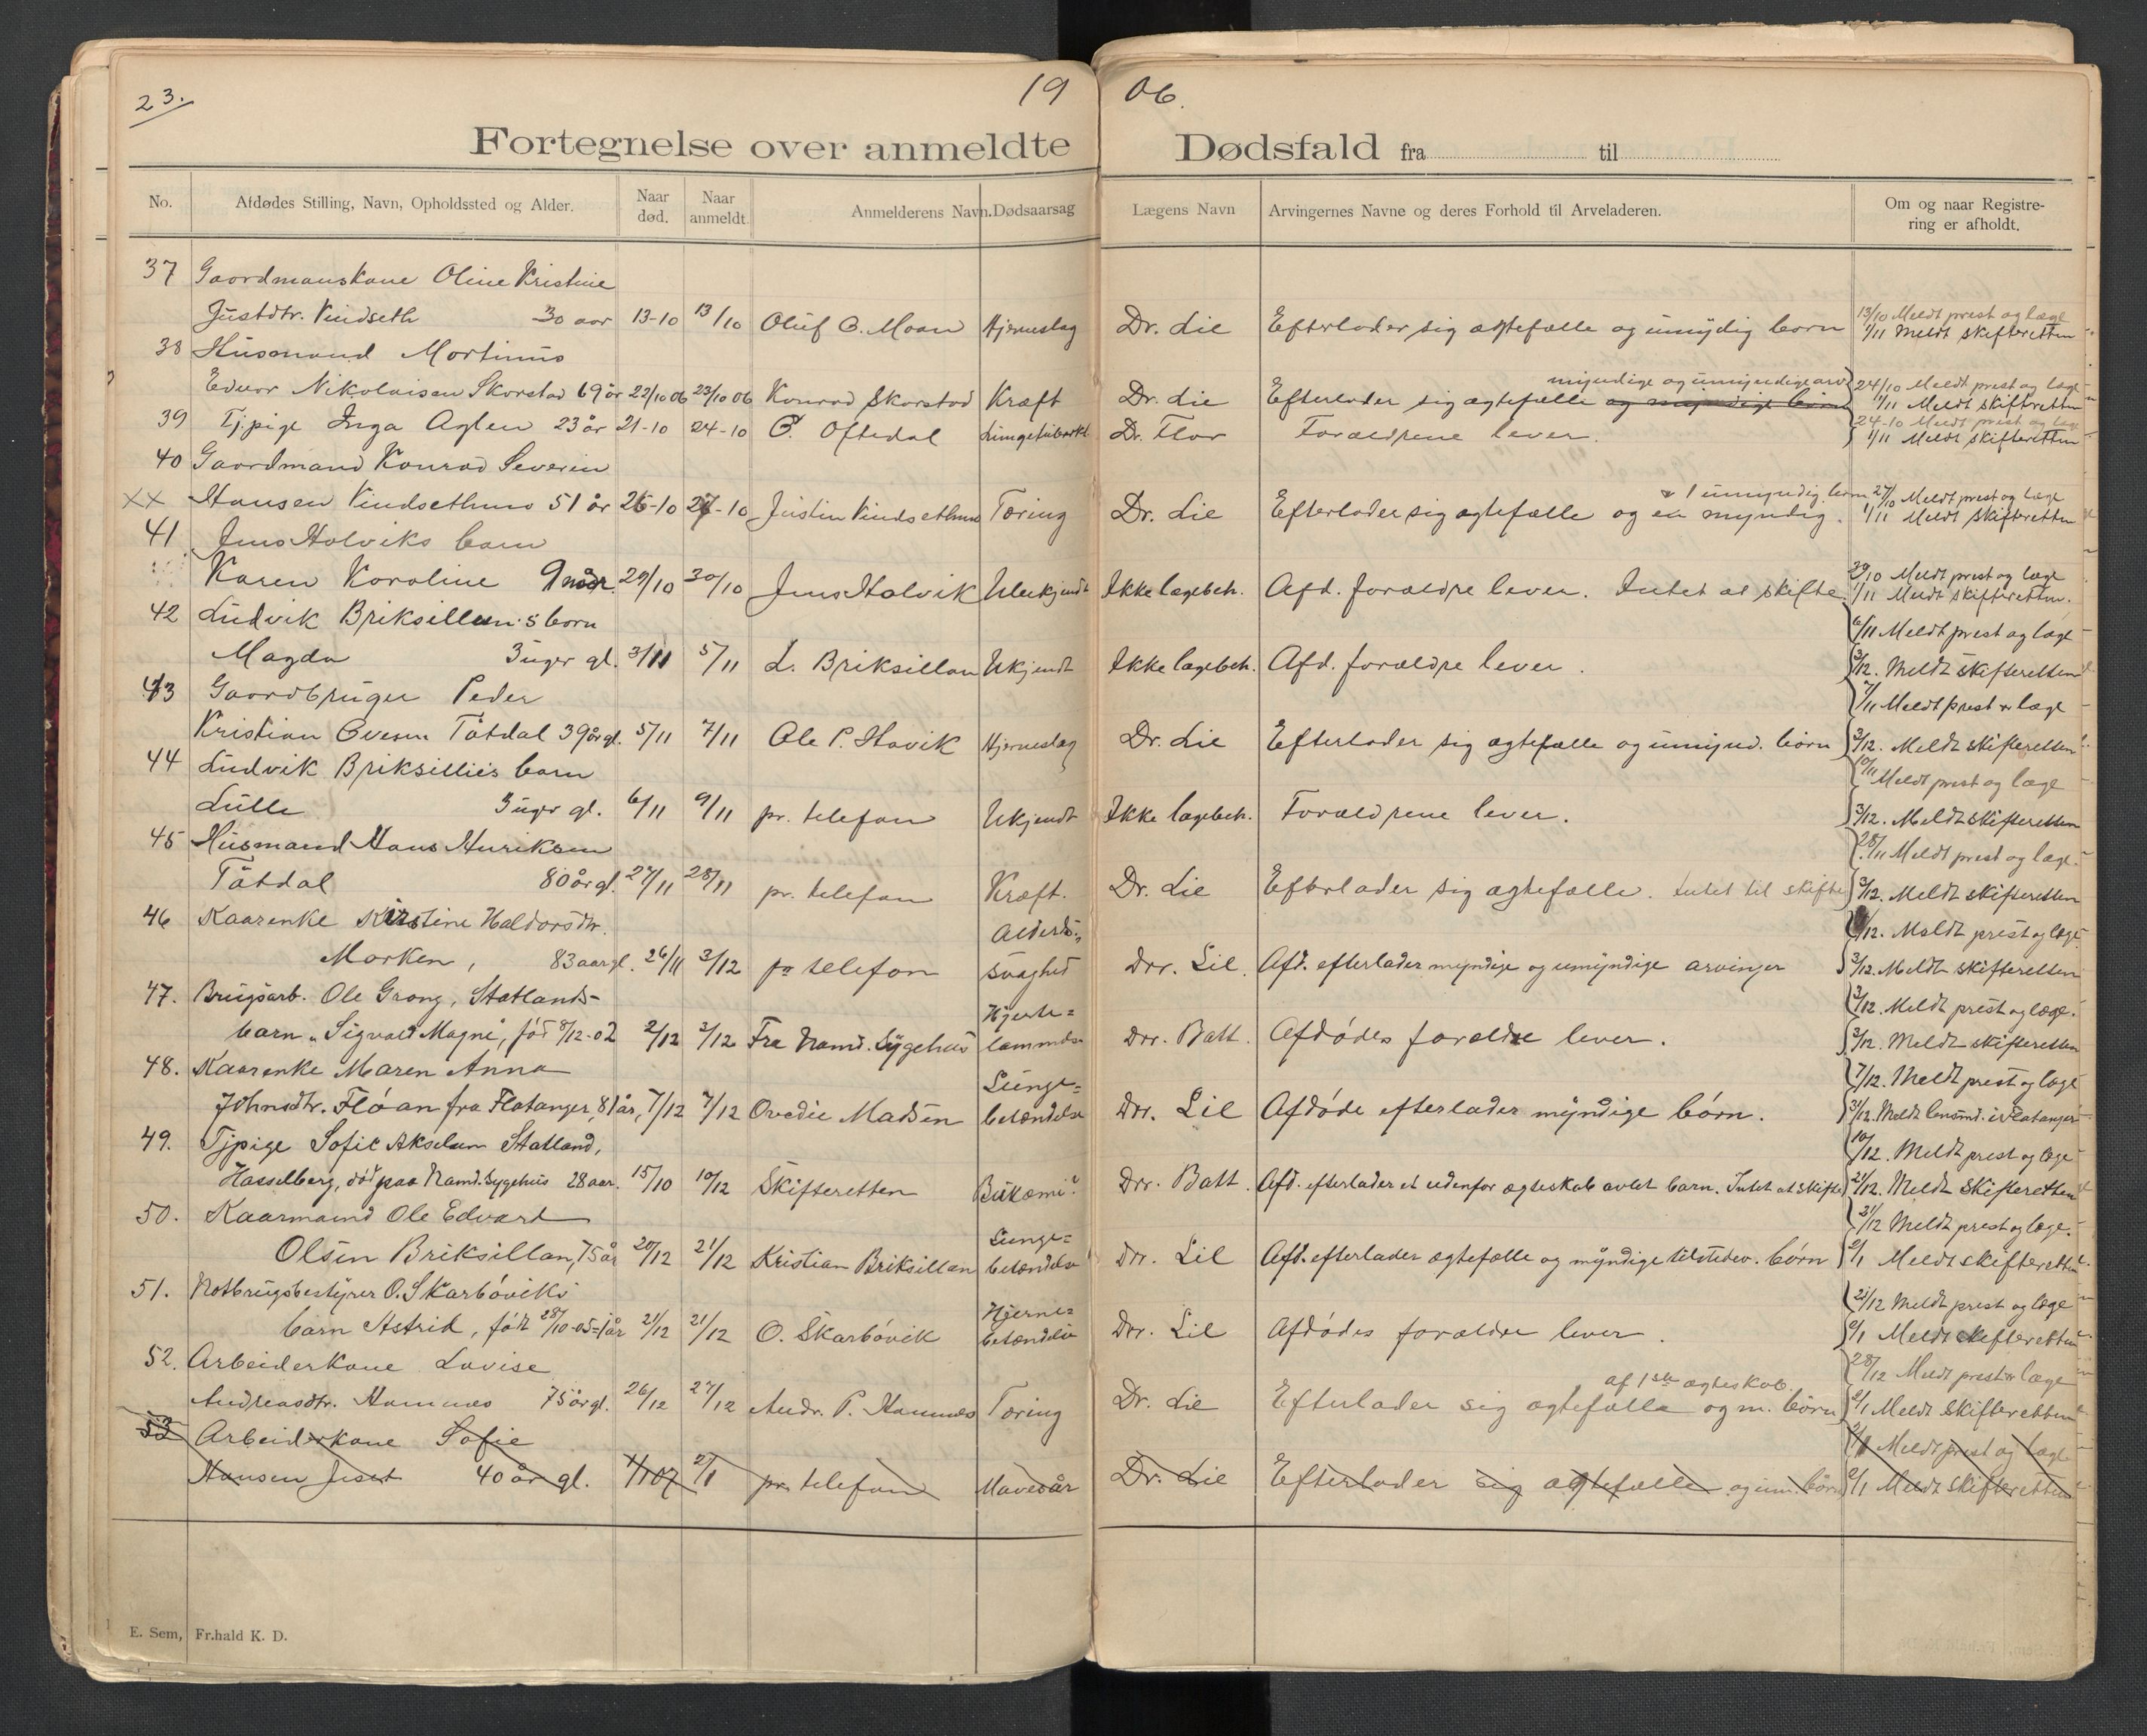 23.
19 06.
Fortegnelse over anmeldte Dødsfald fra til
No. Afdødes Stilling, Navn, Opholdssted og Alder. Naar død. Naar anmeldt. Anmelderens Navn. Dødsaarsag Lægens Navn Arvingernes Navne og deres Forhold til Arveladeren. Om og naar Registrering er afholdt.
37 Gaardmanskone Oline Kristine
Justdtr. Vindseth 30 aar 13-10 13/10 Oluf O. Moan Hjerneslag Dr. Lie Efterlader sig ægtefælle og umydig børn 13/10 Meldt prest og læge
1/11 Meldt skifteretten
38 Husmand Mortinus
myndige og umyndige arv
Edvar Nikolaisen Skorstad 69 år 22/10 06 23/10 06 Konrad Skorstad Kræft Dr. Lie Efterlader sig ægtefælle og myndige børn 24/10 Meldt prest og læge
1/11 Meldt skifteretten
39 Tj.pige Inga Aglen 23 år 21-10 24-10 P. Oftedal Lungetuberkl. Dr. Flor Forældrene lever. 24-10 Meldt prest og læge
1/11 Meldt skifteretten
40 Gaardmand Konrad Severin
1 umyndig barn
xx Hansen Vindsethmo 51 år 26-10 27-10 Justin Vindsethmo Tæring Dr. Lie Efterlader sig ægtefælle og en myndig. 27/10 Meldt prest og læge
1/11 Meldt skifteretten
41 Jens Holviks barn
Karen Karoline 9 mdr. 29/10 30/10 Jens Holvik Ubekjendt Ikke lægebeh. Afd. forældre lever. Intet at skifte. 30/10 Meldt prest og læge
1/11 Meldt skifteretten.
42 Ludvik Briksillan's barn
Magda 3 uger gl. 3/11 5/11 L. Briksillan Ukjendt Ikke lægebeh. Afd. forældre lever. 6/11 Meldt prest og læge
3/12. Meldt skifteretten
43 Gaardbruger Peder
Kristian Ovesen Tøtdal 39 år gl. 5/11 7/11 Ole P. Hovik Hjerneslag Dr. Lie Efterlader sig ægtefælle og umynd. børn 7/11 Meldt prest & læge
3/12. Meldt skifteretten
44 Ludvik Briksillies barn
Lulle 3 uger gl. 6/11 9/11 pr. telefon Ukjendt Ikke lægebeh. Forældrene lever. 10/11 Meldt prest og læge
3/12. Meldt skifteretten
45 Husmand Hans Henriksen
Tøtdal 80 år gl. 27/11 28/11 pr. telefon Kræft. Dr. Lie Efterlader sig ægtefælle. Intet til skifte 28/11 Meldt prest og læge.
3/12. Meldt skifteretten
46 Kaarenke Kirstine Haldorsdtr.
Morken, 83 aar gl. 26/11 3/12 pr telefon Alderdomssvaghed Drr. Lie. Afd. efterlader myndige og umyndige arvinger /12. Meldt prest og læge
3/12. Meldt skifteretten
47. Brugsarb. Ole Grong, Statlands-
barn "Sigvald Magne", fød 8/12-02 2/12 3/12 Fra Namd. Sygehus Hjertelammelse Drr. Batt. Afdødes forældre lever. 3/12. Meldt prest og læge.
3/12. Meldt skifteretten
48. Kaarenke Maren Anna
Johnsdtr. Fløan fra Flatanger, 81 år, 7/12 7/12 Ovedie Madsen Lungebetændelse Drr. Lie Afdøde efterlader myndige børn. 7/12. Meldt prest og læge
31/12. Meldt lensmd. i Flatanger
49. Tjpige Sofie Akselsen Statland,
Hasselberg, død paa Namd. Sygehus 28 aar. 15/10 10/12 Skifteretten Drr. Batt. Afd. efterlader et udenfor ægteskab avlet barn. Intet at skifte 10/12. Meldt prest og læge
21/12. Meldt skifteretten
50. Kaarmand Ole Edvard
Olsen Briksillan, 75 år 20/12 21/12 Kristian Briksillan Lungebetændelse Drr. Lie Afd. efterlader ægtefælle og myndige tilstedev. børn 21/12 Meldt prest og læge.
2/1 Meldt skifteretten
51. Notbrugsbestyrer O. Skarbøviks
barn Astrid, født 28/10-05=1 år 21/12 21/12 O. Skarbøvik Hjernebetændelse Drr. Lie Afdødes forældre lever. 21/12 Meldt prest og læge
2/1 Meldt skifteretten
52. Arbeiderkone Lovise
af 1ste ægteskab
Andreasdtr. Hamnes 75 år gl. 26/12 27/12 Andr. P. Hamnes Tæring Dr. Lie Efterlader sig ægtefælle og m. børn 28/12 Meldt prest & læge
2/1 Meldt skifteretten
53 Arbeiderkone Sofie
Hansen Jeset 40 år gl. 1/1 07 2/1 pr. telefon Mavesår Dr. Lie Efterlader sig ægtefælle og um. børn 2/1 Meldt prest og læge
2/1 Meldt skifteretten
E. Sem, Fr.hald K. D.